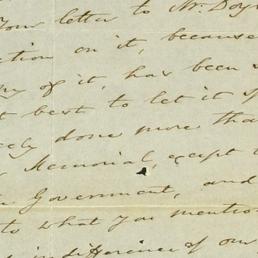 Your letter to Mr. Doy
ction on it, because
of it, has been
t best to let it
ely done more tha
Memorial, except
Government, and
to what you mentio
indifference of our